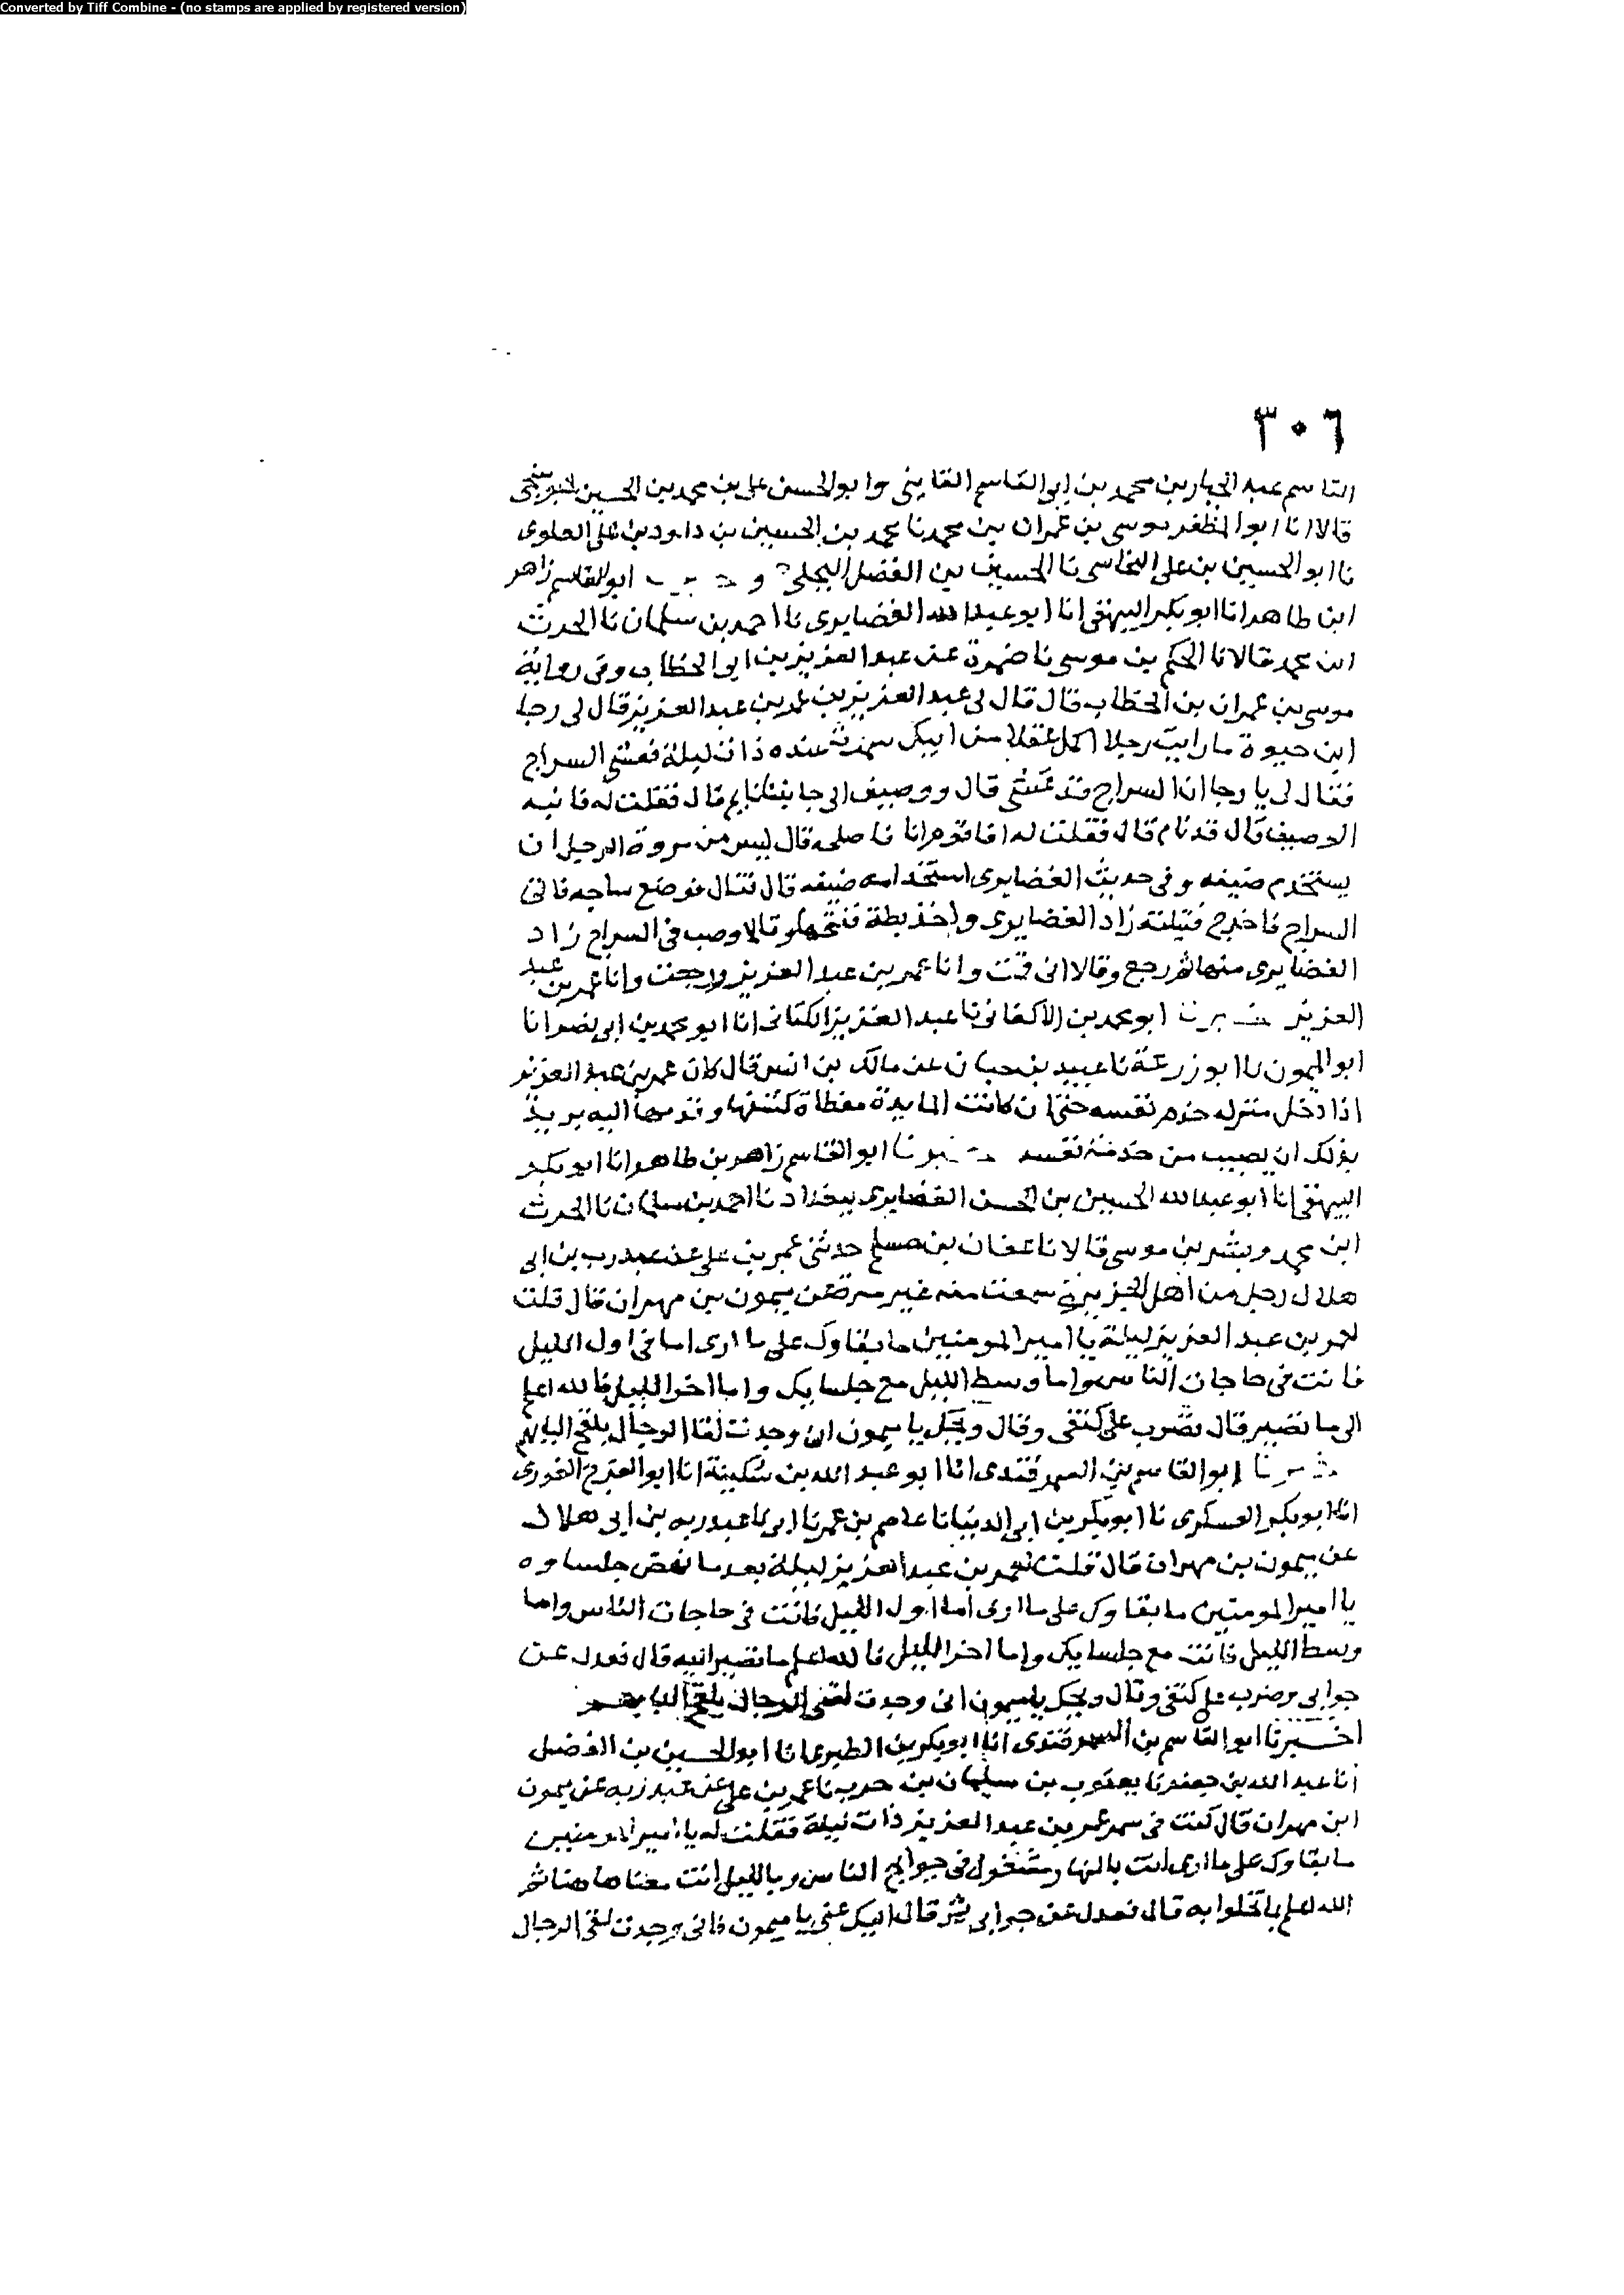 Converted by Tiff Combine - (no stamps are applied by registered version)
٣٠٦
القاسم عبد الجبار بن محمد بن ابي القاسم القايني وابو الحسن علي بن محمد بن الحسين
قالا انا ابو المظفر موسى بن عمران بن محمد نا محمد بن الحسين بن داود بن علي العلوي
نا ابو الحسين بن علي النخاسي نا الحسين بن الفضل البجلي ابو القاسم زاهر
ابن طاهر انا ابو بكر البيهقي انا ابو عبد الله الغضايري نا احمد بن سلمان نا الحرث
ابن محمد قالا نا الحكم بن موسى نا ضمرة عن عبد العزيز بن ابي الخطاب وفي رواية
موسى بن عمران بن الخطاب قال قال لي عبد العزيز بن عمر بن عبد العزيز قال لي رجا
ابن حيوة ما رايت رجلا اكمل عقلا من ابيك سمرت عنده ذات ليلة فعشي السراج
فقال لي يا رجا ان السراج قد عشي قال ووصيف الى جانبنا نايم قال فقلت له فانبه
الوصيف قال قد نام قال فقلت له افاقوم انا فاصلحه قال ليس من مروة الرجل ان
يستخدم ضيفه وفي حديث الغضايري استخدامه ضيفه قال فقال فوضع ساجه فاتى
السراج فاخرج فتيلته زاد الغضايري واخذ بطة ففتحها وقالا وصب في السراج زاد
الغضايري منها ثم رجع وقالا اني قمت وانا عمر بن عبد العزيز ورجعت وانا عمر بن عبد
العزيز ابو محمد بن الاكفاني نا عبد العزيز الكتاني انا ابو محمد بن ابي نصر انا
ابو الميمون نا ابو زرعة نا عبيد بن حبان عن مالك بن انس قال كان عمر بن عبد العزيز
اذا دخل منزله خدم نفسه حتى ان كانت المايدة مغطاة كشفها وقدمها اليه يريد
بذلك ان يصيب من خدمة نفسه ابو القاسم زاهر بن طاهر انا ابو بكر
البيهقي انا ابو عبد الله الحسين بن الحسن الغضايري ببغداد نا احمد بن سلمان نا الحرث
ابن محمد وبشر بن موسى قالا نا عفان بن مسلم حدثني عمر بن علي عن عبد رب بن ابي
هلال رجل من اهل الجزيرة سمعت منه غير مرة عن ميمون بن مهران قال قلت
لعمر بن عبد العزيز ليلة يا امير المومنين ما بقاوك على ما ارى اما في اول الليل
فانت في حاجات الناس واما وسط الليل مع جلسايك واما اخر الليل فالله اعلم
الى ما تصير قال فضرب على كتفي وقال ويحك يا ميمون اني وجدت لقا الرجال يلقح البابهم
ابو القاسم بن السمرقندي انا ابو عبد الله بن سكينة انا ابو الفرج الغوري
انا ابو بكر العسكري نا ابو بكر بن ابي الدنيا نا عاصم بن عمر نا ابي نا عبد ربه بن ابي هلال
عن ميمون بن مهران قال قلت لعمر بن عبد العزيز ليلة بعد ما نهض جلساوه
يا امير المومنين ما بقاوك على ما ارى اما اول الليل فانت في حاجات الناس واما
وسط الليل فانت مع جلسايك واما اخر الليل فالله اعلم ما تصير اليه قال فعدل عن
جوابي وضرب على كتفي وقال ويحك يا ميمون اني وجدت لقي الرجال يلقح البابهم
اخبرنا ابو القاسم بن السمرقندي انا ابو بكر بن الطبري انا ابو الحسين بن الفضل
انا عبد الله بن جعفر نا يعقوب بن سليمان بن حرب نا عمر بن علي عن عبد ربه عن ميمون
ابن مهران قال كنت في سمر عمر بن عبد العزيز ذات ليلة فقلت له يا امير المومنين
ما بقاوك على ما ارى انت بالنهار مشغول في حوايج الناس وبالليل انت معنا هاهنا ثم
الله اعلم ما تخلوا به قال فعدل عن جوابي ثم قال اليك عني يا ميمون فاني وجدت لقي الرجال